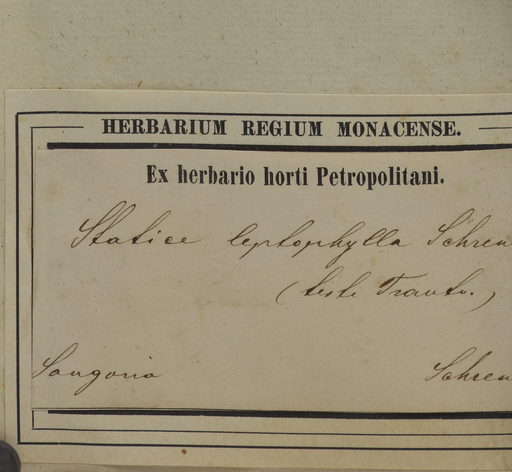 HERBARIUM REGIUM MONACENSE.
Ex herbario horti Petropolitani.
Statice leptophylla Schren
(teste Trautv.)
Songoria
Schren